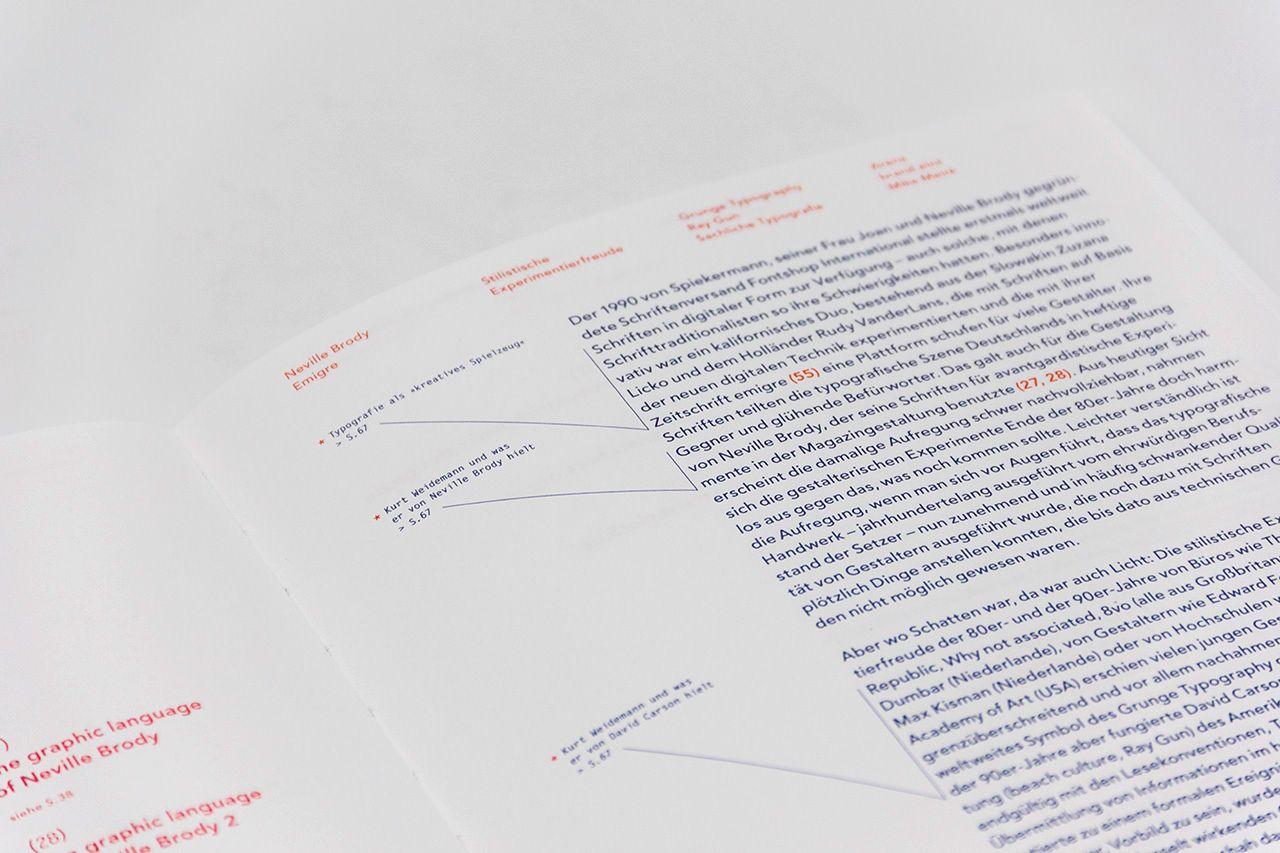 Neville Brody
Emigre
Stilistische
Experimentierfreude
Grunge Typography
Ray Gun
Sachliche Typografie
brand eins
Mike Meiré
* Typografie als »kreatives Spielzeug«
> S.67
* Kurt Weidemann und was
er von Neville Brody hielt
> S.67
* Kurt Weidemann und was
er von David Carson hielt
> S.67
Der 1990 von Spiekermann, seiner Frau Joan und Neville Brody gegrün-
dete Schriftenversand Fontshop International stellte erstmals weltweit
Schriften in digitaler Form zur Verfügung – auch solche, mit denen
Schrifttraditionalisten so ihre Schwierigkeiten hatten. Besonders inno-
vativ war ein kalifornisches Duo, bestehend aus der Slowakin Zuzana
Licko und dem Holländer Rudy VanderLans, die mit Schriften auf Basis
der neuen digitalen Technik experimentierten und die mit ihrer
Zeitschrift emigre (55) eine Plattform schufen für viele Gestalter. Ihre
Schriften teilten die typografische Szene Deutschlands in heftige
Gegner und glühende Befürworter. Das galt auch für die Gestaltung
von Neville Brody, der seine Schriften für avantgardistische Experi-
mente in der Magazingestaltung benutzte (27, 28). Aus heutiger Sicht
erscheint die damalige Aufregung schwer nachvollziehbar, nahmen
sich die gestalterischen Experimente Ende der 80er-Jahre doch harm-
los aus gegen das, was noch kommen sollte. Leichter verständlich ist
die Aufregung, wenn man sich vor Augen führt, dass das typografische
Handwerk – jahrhundertelang ausgeführt vom ehrwürdigen Berufs-
stand der Setzer – nun zunehmend und in häufig schwankender Quali
tät von Gestaltern ausgeführt wurde, die noch dazu mit Schriften
plötzlich Dinge anstellen konnten, die bis dato aus technischen G
den nicht möglich gewesen waren.
Aber wo Schatten war, da war auch Licht: Die stilistische Ex
tierfreude der 80er- und der 90er-Jahre von Büros wie Th
Republic, Why not associated, 8vo (alle aus Großbritan
Dumbar (Niederlande), von Gestaltern wie Edward Fe
Max Kisman (Niederlande) oder von Hochschulen w
Academy of Art (USA) erschien vielen jungen Ges
grenzüberschreitend und vor allem nachahmen
weltweites Symbol des Grunge Typography
der 90er-Jahre aber fungierte David Carso
tung (beach culture, Ray Gun) des Amerik
endgültig mit den Lesekonventionen, T
Übermittlung von Informationen im h
tierte zu einem formalen Ereign
Vorbild zu sein, wurde
wirkenden
)
he graphic language
of Neville Brody
siehe S.38
(28)
graphic language
ville Brody 2